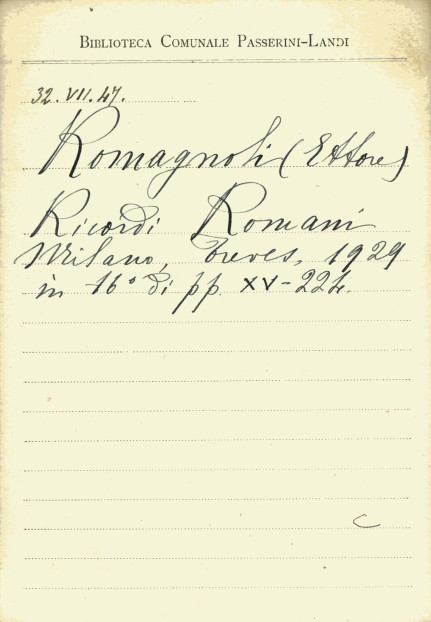 BIBLIOTECA COMUNALE PASSERINI-LANDI
32. VII. 47.
Romagnoli (Ettore)
Ricordi Romani
Milano, Treves, 1929
in 16° di pp. XV-224.
C